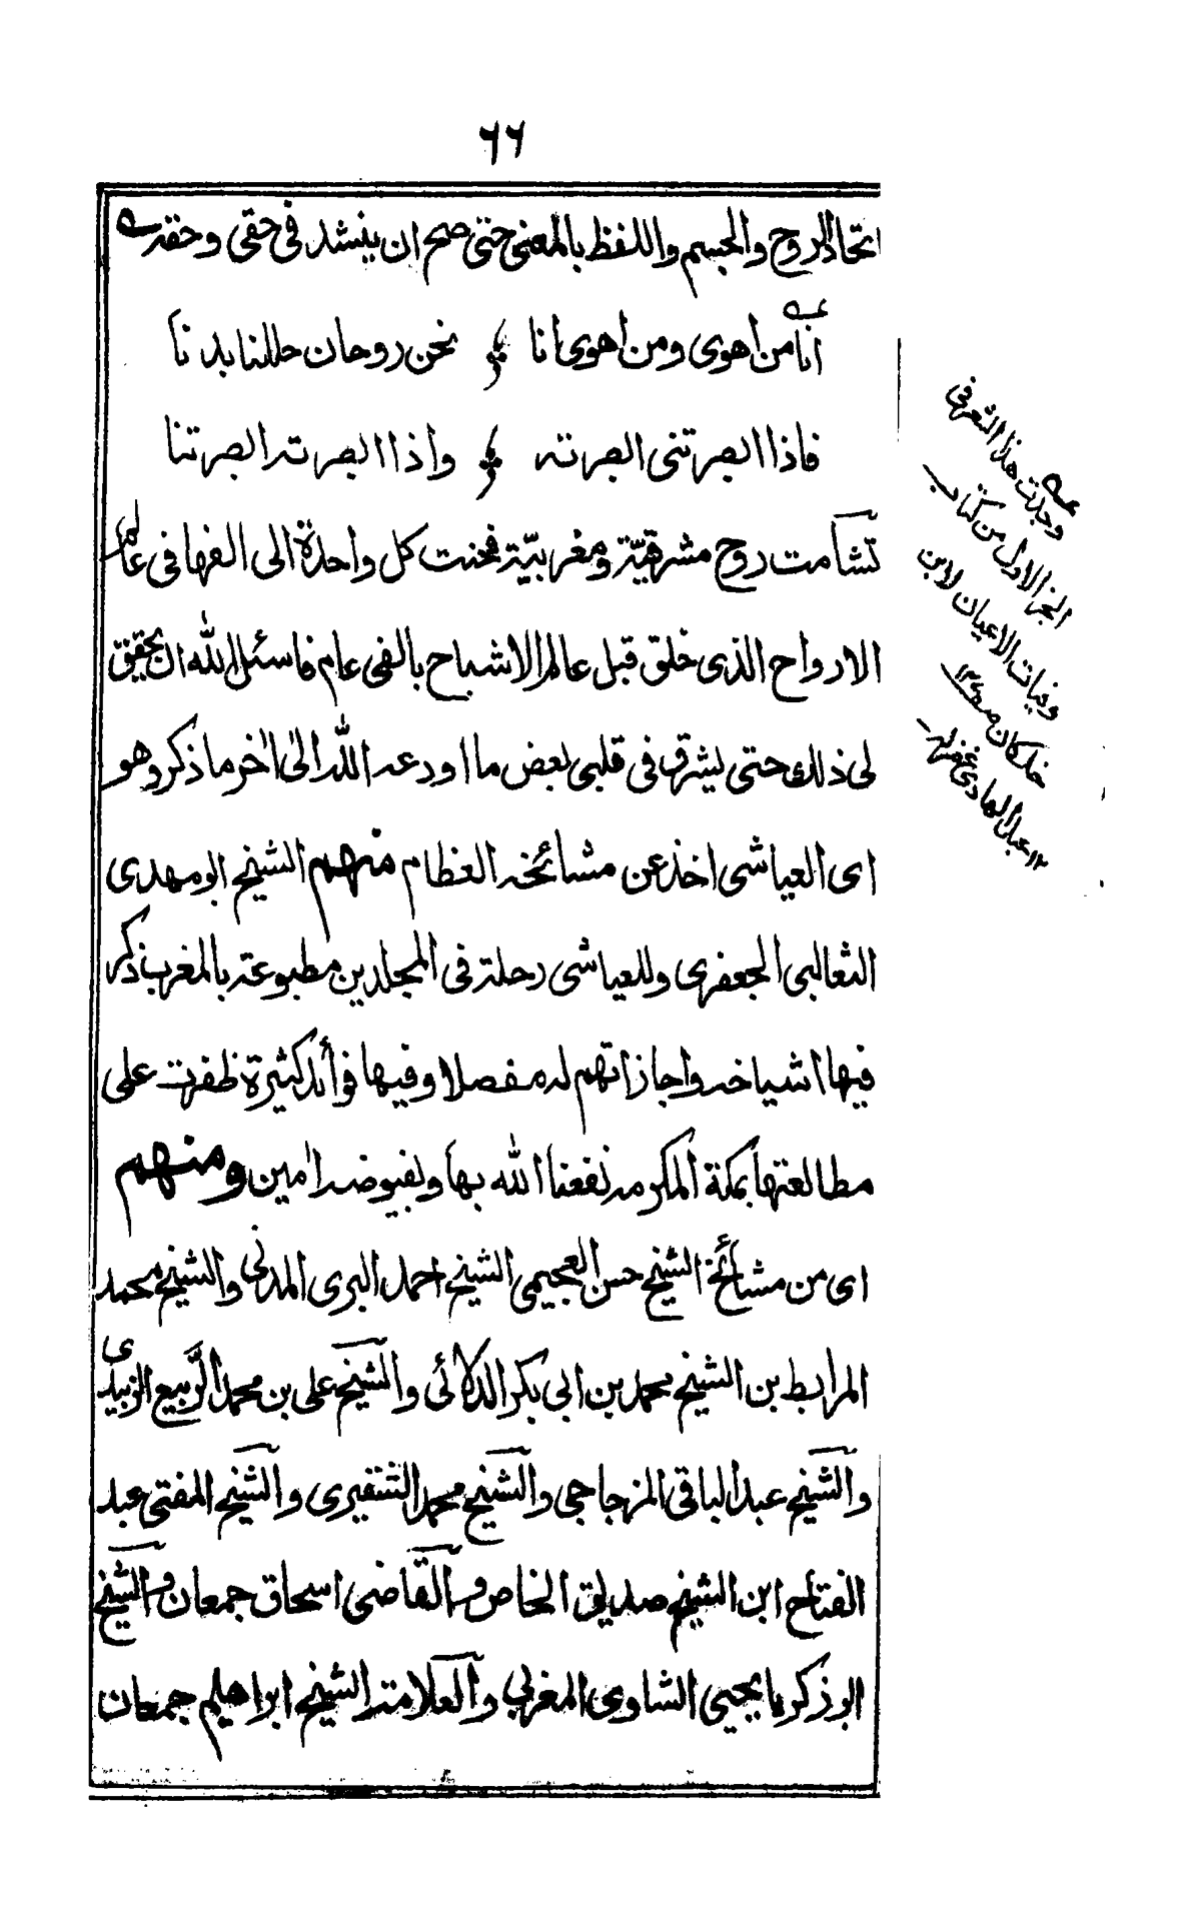 ٦٦
اتحاد الروح والجسم واللفظ بالمعنى حتى صح ان ينشد فى حقى وحقه
انا من اهوى ومن اهوى انا نحن روحان حللنا بدنا
فاذا ابصرتنى ابصرته واذا ابصرته ابصرتنا
تشامت روح مشرقيّة ومغربيّة فحنت كل واحدة الى الفها فى عالم
الارواح الذى خلق قبل عالم الاشباح بالفى عام فاسئل الله ان يحقق
لى ذلك حتى يشرق فى قلبى بعض ما اودعه الله الى اٰخر ما ذكر وهو
اى العياشى اخذ عن مشائخه العظام منهم الشيخ ابو مهدى
الثعالبى الجعفرى وللعياشى رحلة فى المجلدين مطبوعة بالمغرب ذكر
فيها اشياخه واجازاتهم له مفصلا وفيها فوائد كثيرة ظفرت على
مطالعتها بمكة المكرمه نفعنا الله بها وبفيوضه اٰمين ومنهم
اى من مشائخ الشيخ حسن العجيمى الشيخ احمد البرى المدنى والشيخ محمد
المرابط بن الشيخ محمد بن ابى بكر الدلائى والشيخ على بن محمد الرّبيع الزبيدى
والشيخ عبد الباقى المزجاجى والشيخ محمد الشنفيرى والشيخ المفتى عبد
الفتاح ابن الشيخ صديق الخاص والقاضى اسحاق جمعان والشيخ
ابو زكريا يحيى الشاوى المغربى والعلامة الشيخ ابراهيم جمعان
عه وجدت هذا الشعر فى
الجزء الاول من كتاب
وفيات الاعيان لابن
خلكان صه
١٢ عبد الهادى غفرله